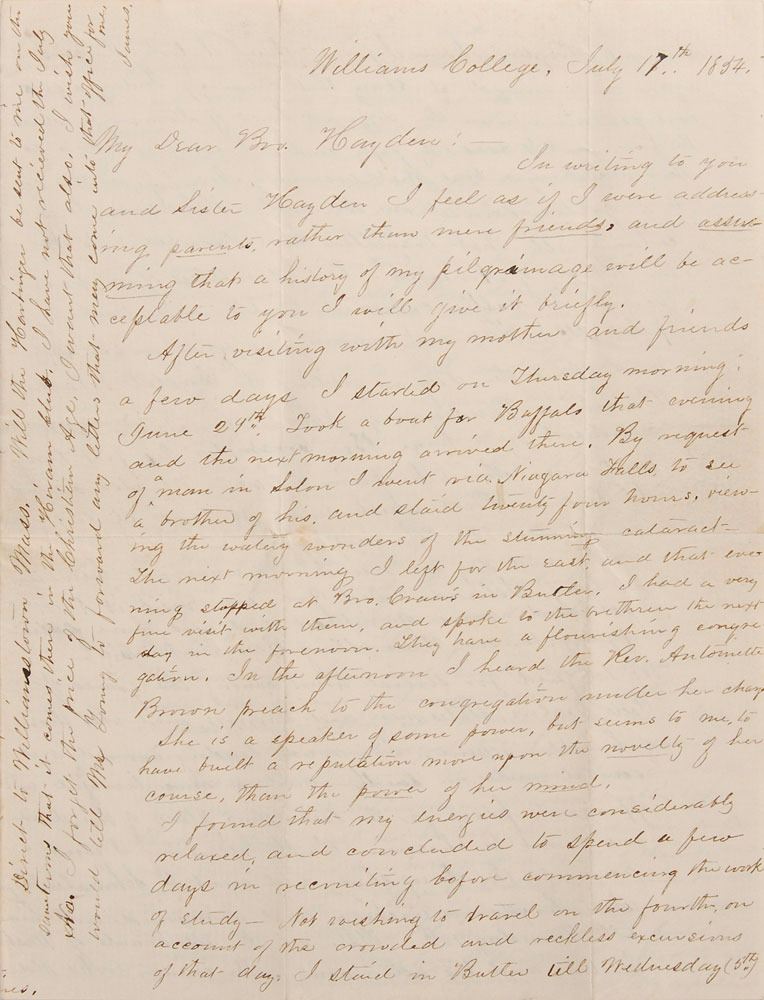 Williams College, July 17.th 1854.
My Dear Bro. Hayden! —
In writing to you
and Sister Hayden I feel as if I were address-
ing parents, rather than mere friends, and assu-
ming that a history of my pilgrimage will be ac-
ceptable to you I will give it briefly.
After visiting with my mother and friends
a few days I started on Thursday morning;
June 29th. Took a boat for Buffalo that evening
and the next morning arrived there. By request
of a man in Solon I went via Niagara Falls to see
a brother of his, and staid twenty four hours, view-
ing the watery wonders of the stunning cataract—
The next morning I left for the East and that eve-
ning stopped at Bro. Craw's in Butler. I had a very
fine visit with them, and spoke to the brethren the next
day in the forenoon. They have a flourishing congre
gation. In the afternoon I heard the Rev. Antoinette
Brown preach to the congregation under her charge
She is a speaker of some power, but seems to me, to
have built a reputation more upon the novelty of her
course, than the power of her mind.
I found that my energies were considerably
relaxed, and concluded to spend a few
days in recruiting before commencing the work
of study— Not wishing to travel on the fourth, on
account of the crowded and reckless excursions
of that day, I staid in Butler till Wednesday (5th)
Direct to Williamstown Mass. Will the Harbinger be sent to me on the
same terms that it comes there in the Hiram club. I have not received the July
No. I forget the price of the Christian Age. I want that also. I wish you
would tell Mr Young to forward any letters that may come into that office for
me.
James.